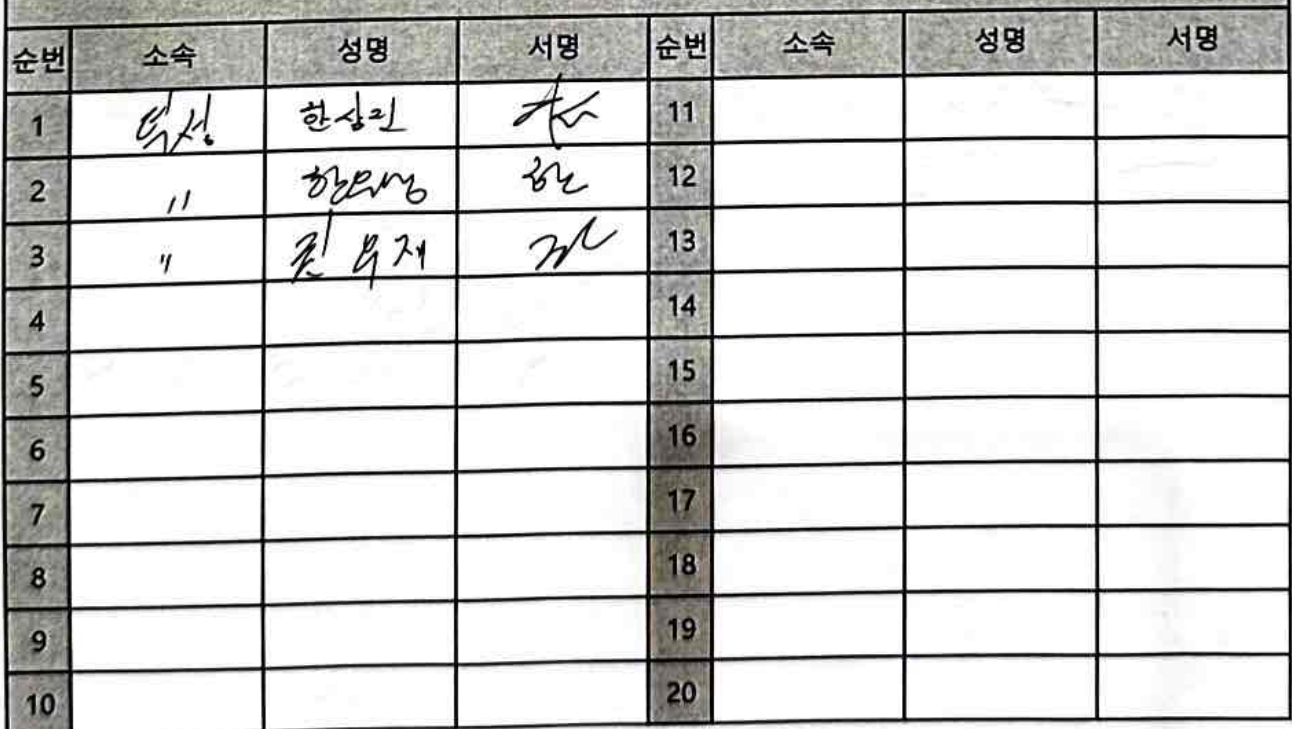 순번 소속 성명 서명 순번 소속 성명 서명
1 덕성 한상진 11
2 〃 12
3 〃 13
4 14
5 15
6 16
7 17
8 18
9 19
10 20